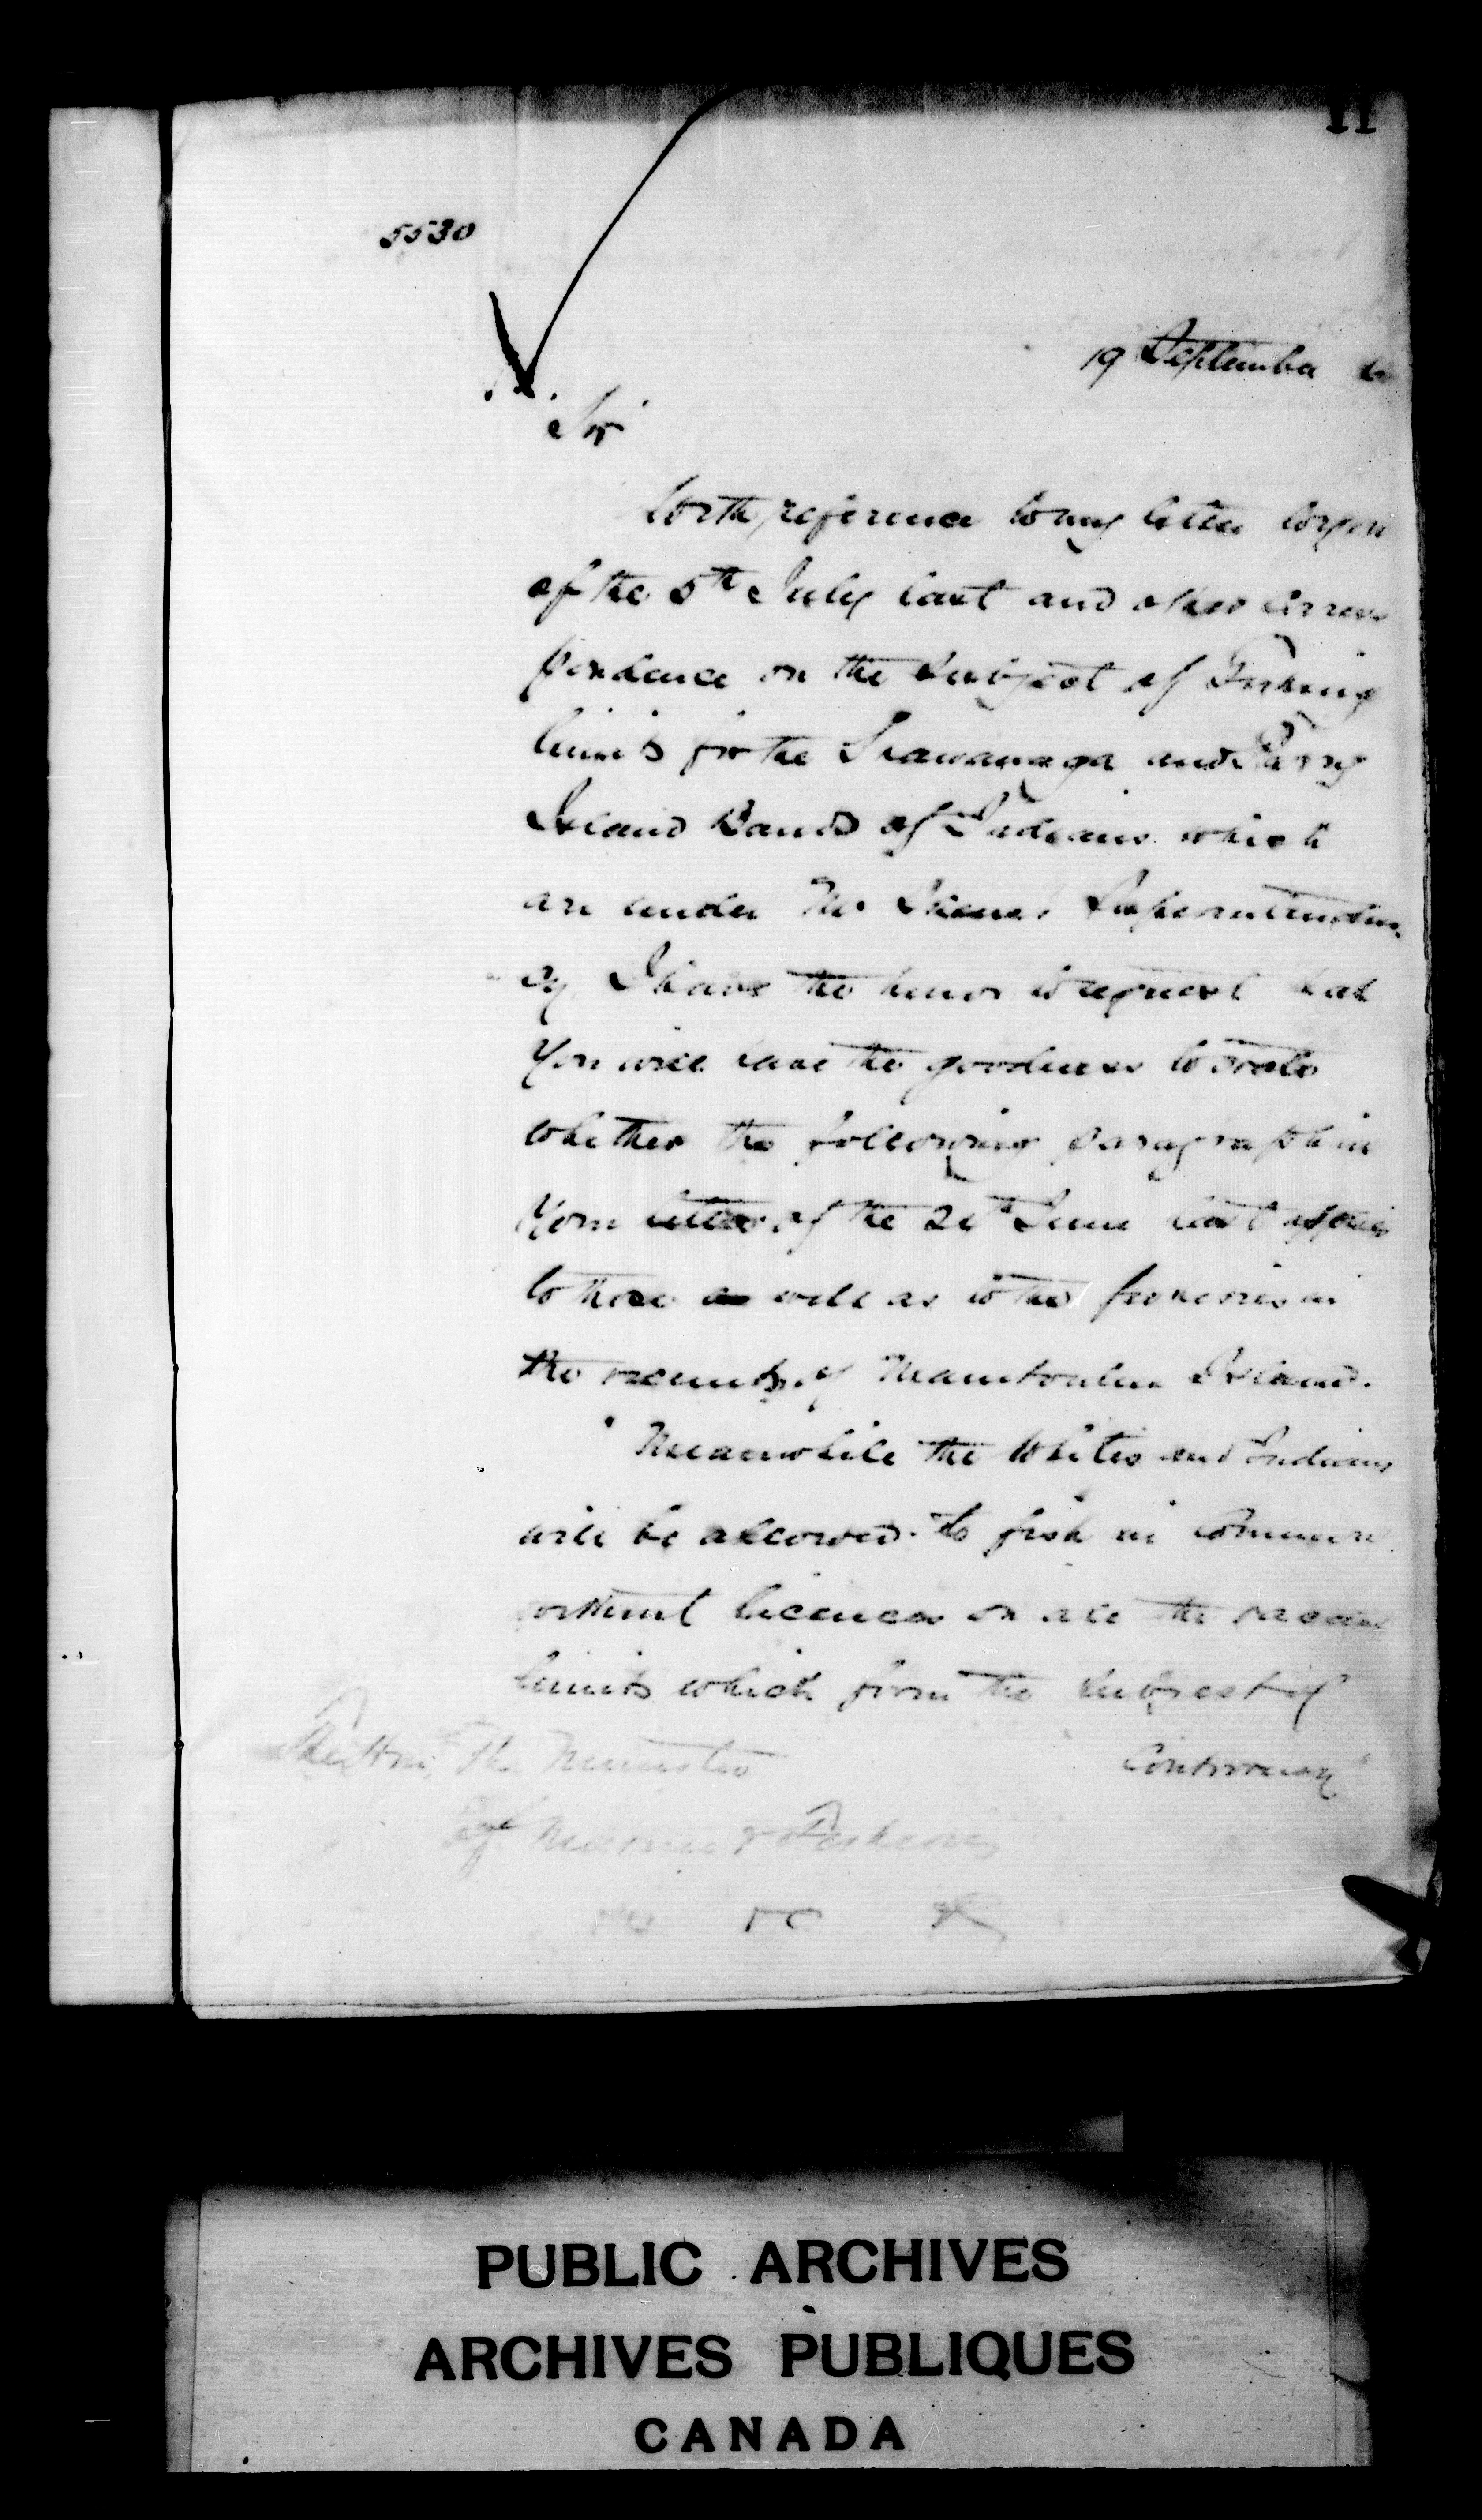 11
5530
19 September
Sir
With reference to my letter to you
of the 5th July last and other corres
pondence on the subject of Fishing
limits for the Shawanaga and Parry
Island Bands of Indians which
are under Mr Skene's Superintenden
cy I have the honor to request that
You will have the goodness to state
whether the following paragraph in
Your letter of the June last applies
to those as well as to the fisheries in
the vicinity of Manitoulin Island.
" Meanwhile the Whites and Indians
will be allowed to fish in Common
without licences on all the vacant
limits which form the subject of
The Hon. The Minister
Controversy
of Marine & Fisheries